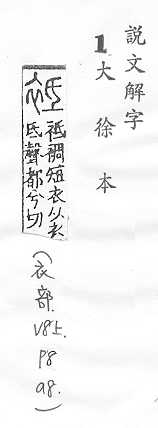 說文解字
1 大徐本
袛 袛裯短衣从衣
氐聲都兮切
(衣部. V8上. P8 a8.)